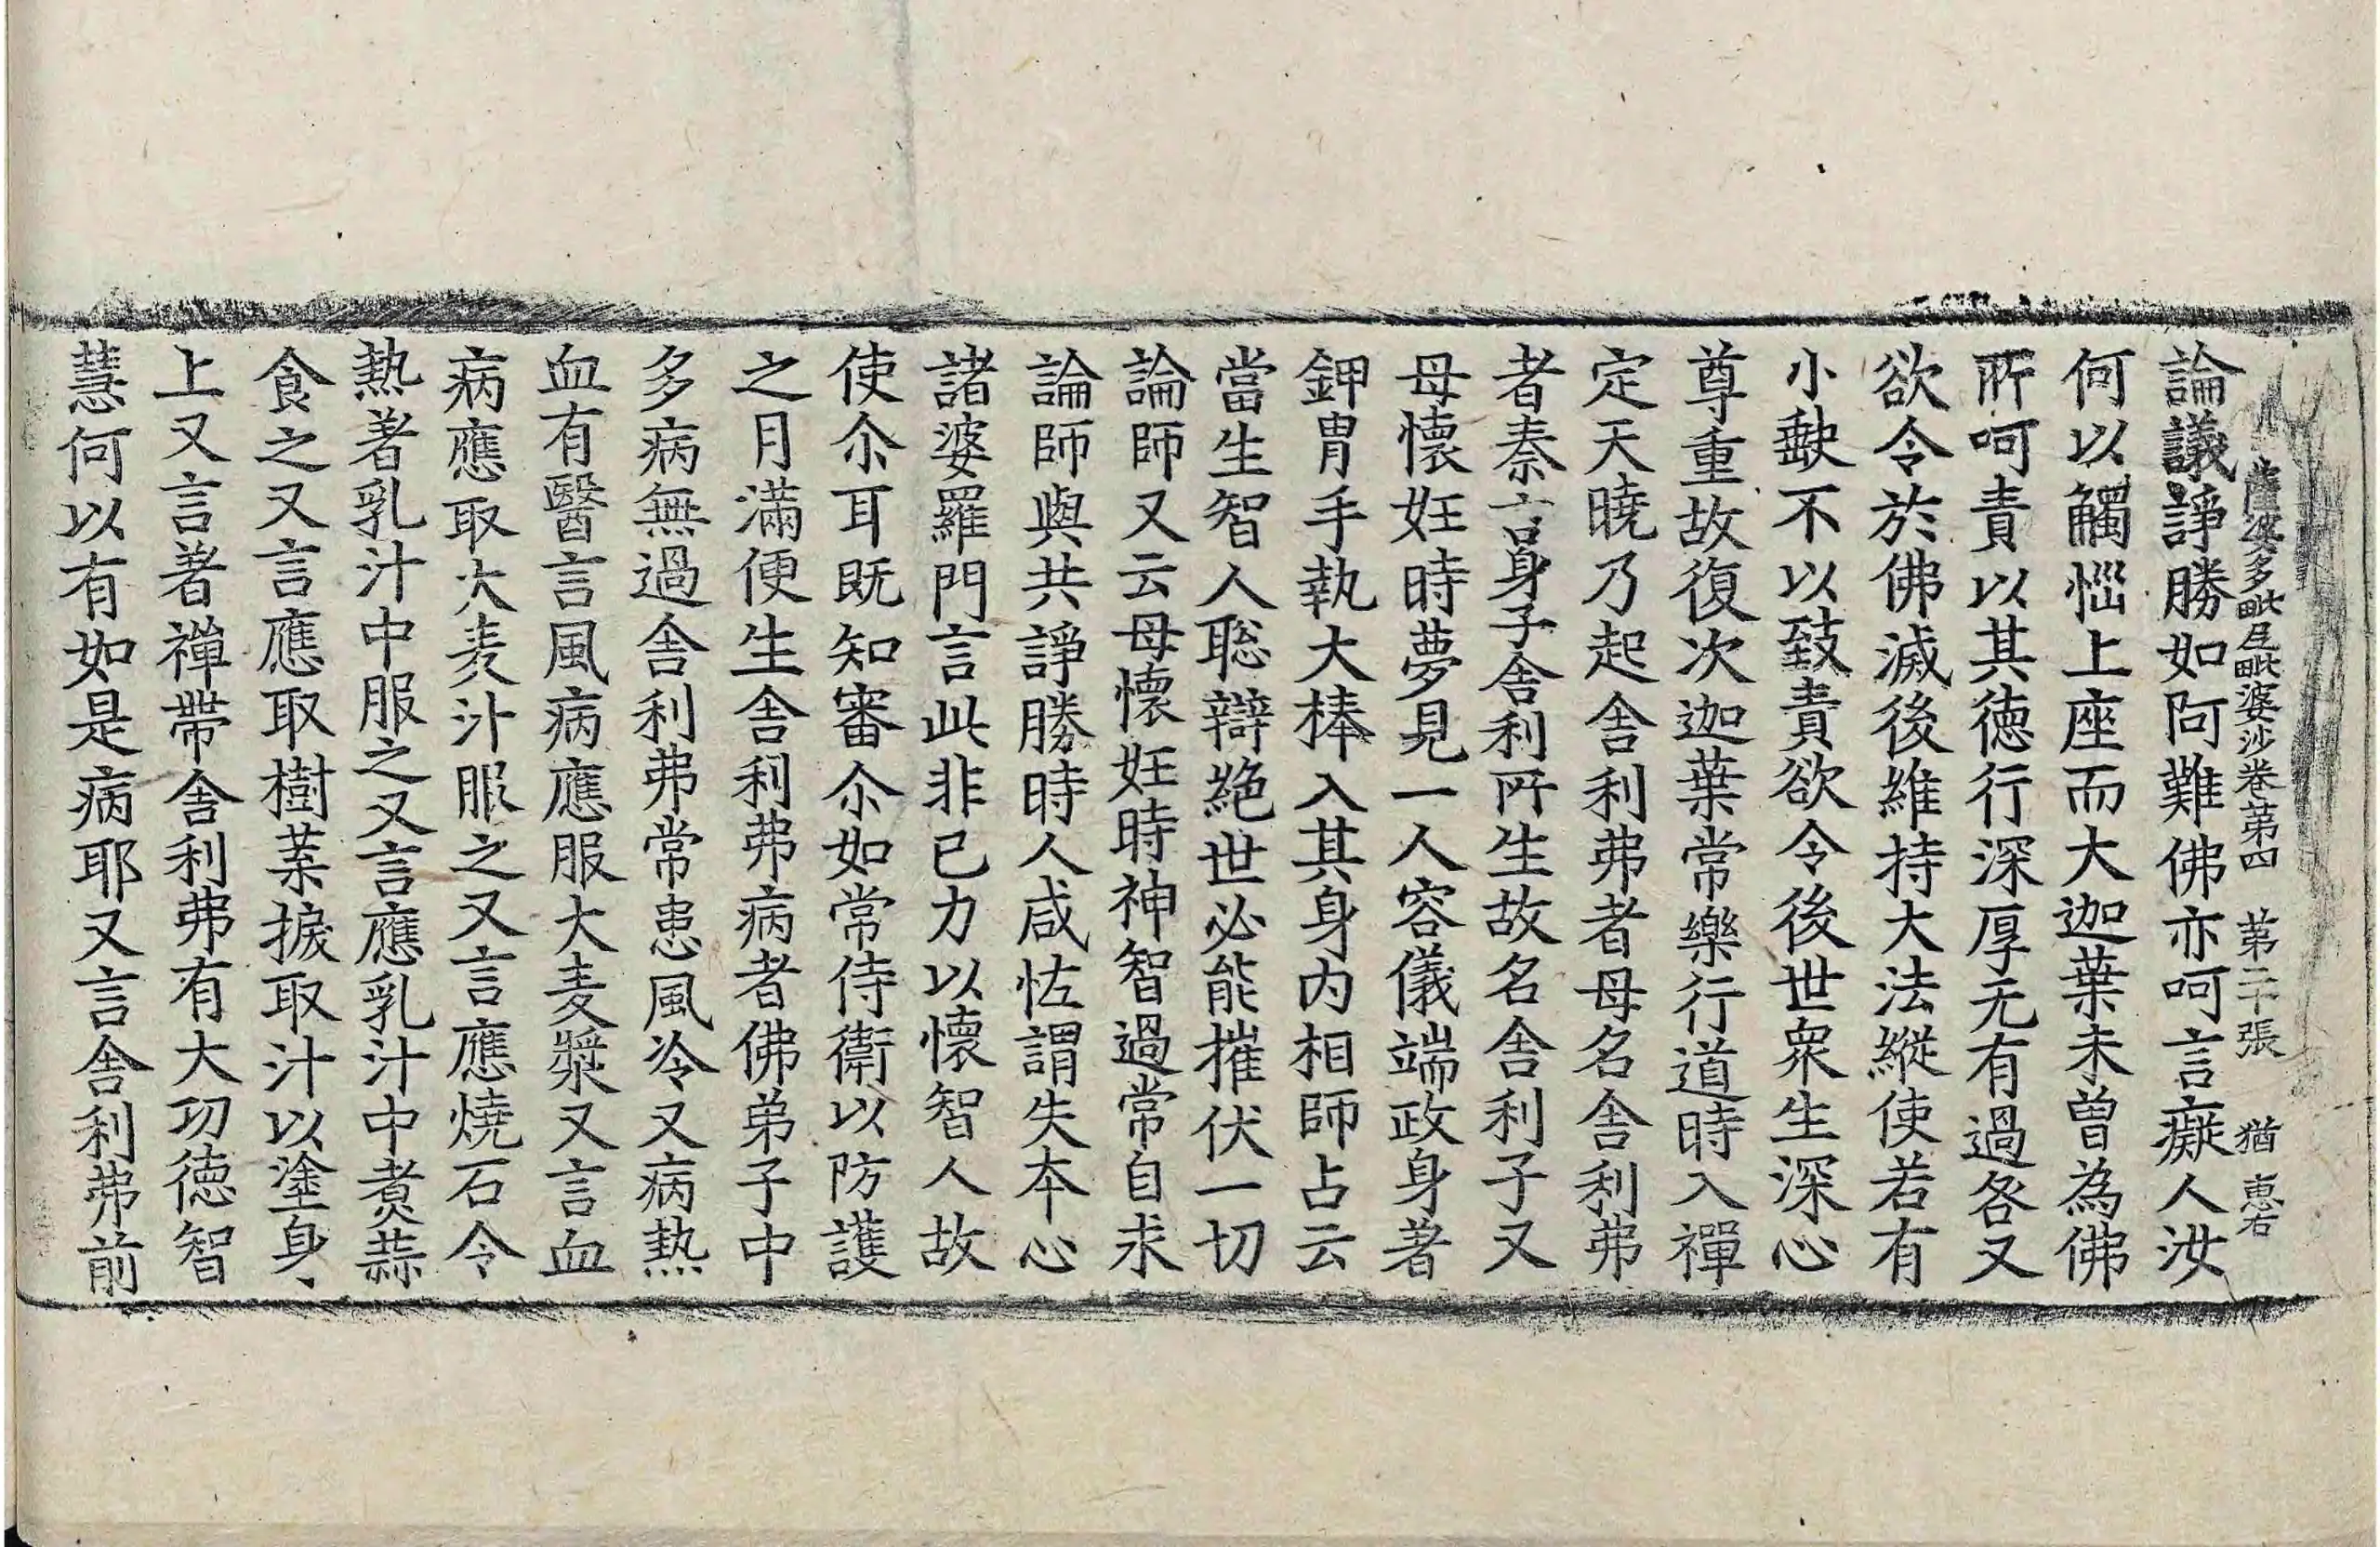 薩婆多毗尼毗婆沙卷第四 第二十張 猶 惠右
論議諍勝如阿難佛亦呵言癡人汝
何以觸惱上座而大迦葉未曾為佛
所呵責以其德行深厚无有過咎又
欲令於佛滅後維持大法縱使若有
小缺不以致責欲令後世眾生深心
尊重故復次迦葉常樂行道時入禪
定天曉乃起舍利弗者母名舍利弗
者秦言身子舍利所生故名舍利子又
母懷妊時夢見一人容儀端政身著
鉀胄手執大棒入其身內相師占云
當生智人聡辯絕世必能摧伏一切
論師又云母懷妊時神智過常自求
論師與共諍勝時人咸怪謂失本心
諸婆羅門言此非已力以懷智人故
使尒耳既知審尒如常侍衛以防護
之月滿便生舍利弗病者佛弟子中
多病無過舍利弗常患風冷又病熱
血有醫言風病應服大麦漿又言血
病應取大麦汁服之又言應燒石令
熱著乳汁中服之又言應乳汁中煑蒜
食之又言應取樹葉捩取汁以塗身、
上又言著禪帶舍利弗有大功德智
慧何以有如是病耶又言舍利弗前